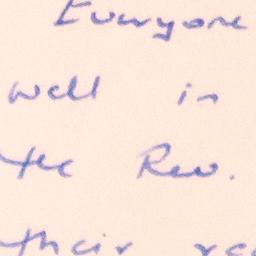 Everyone
well in
the Rev.
their rec